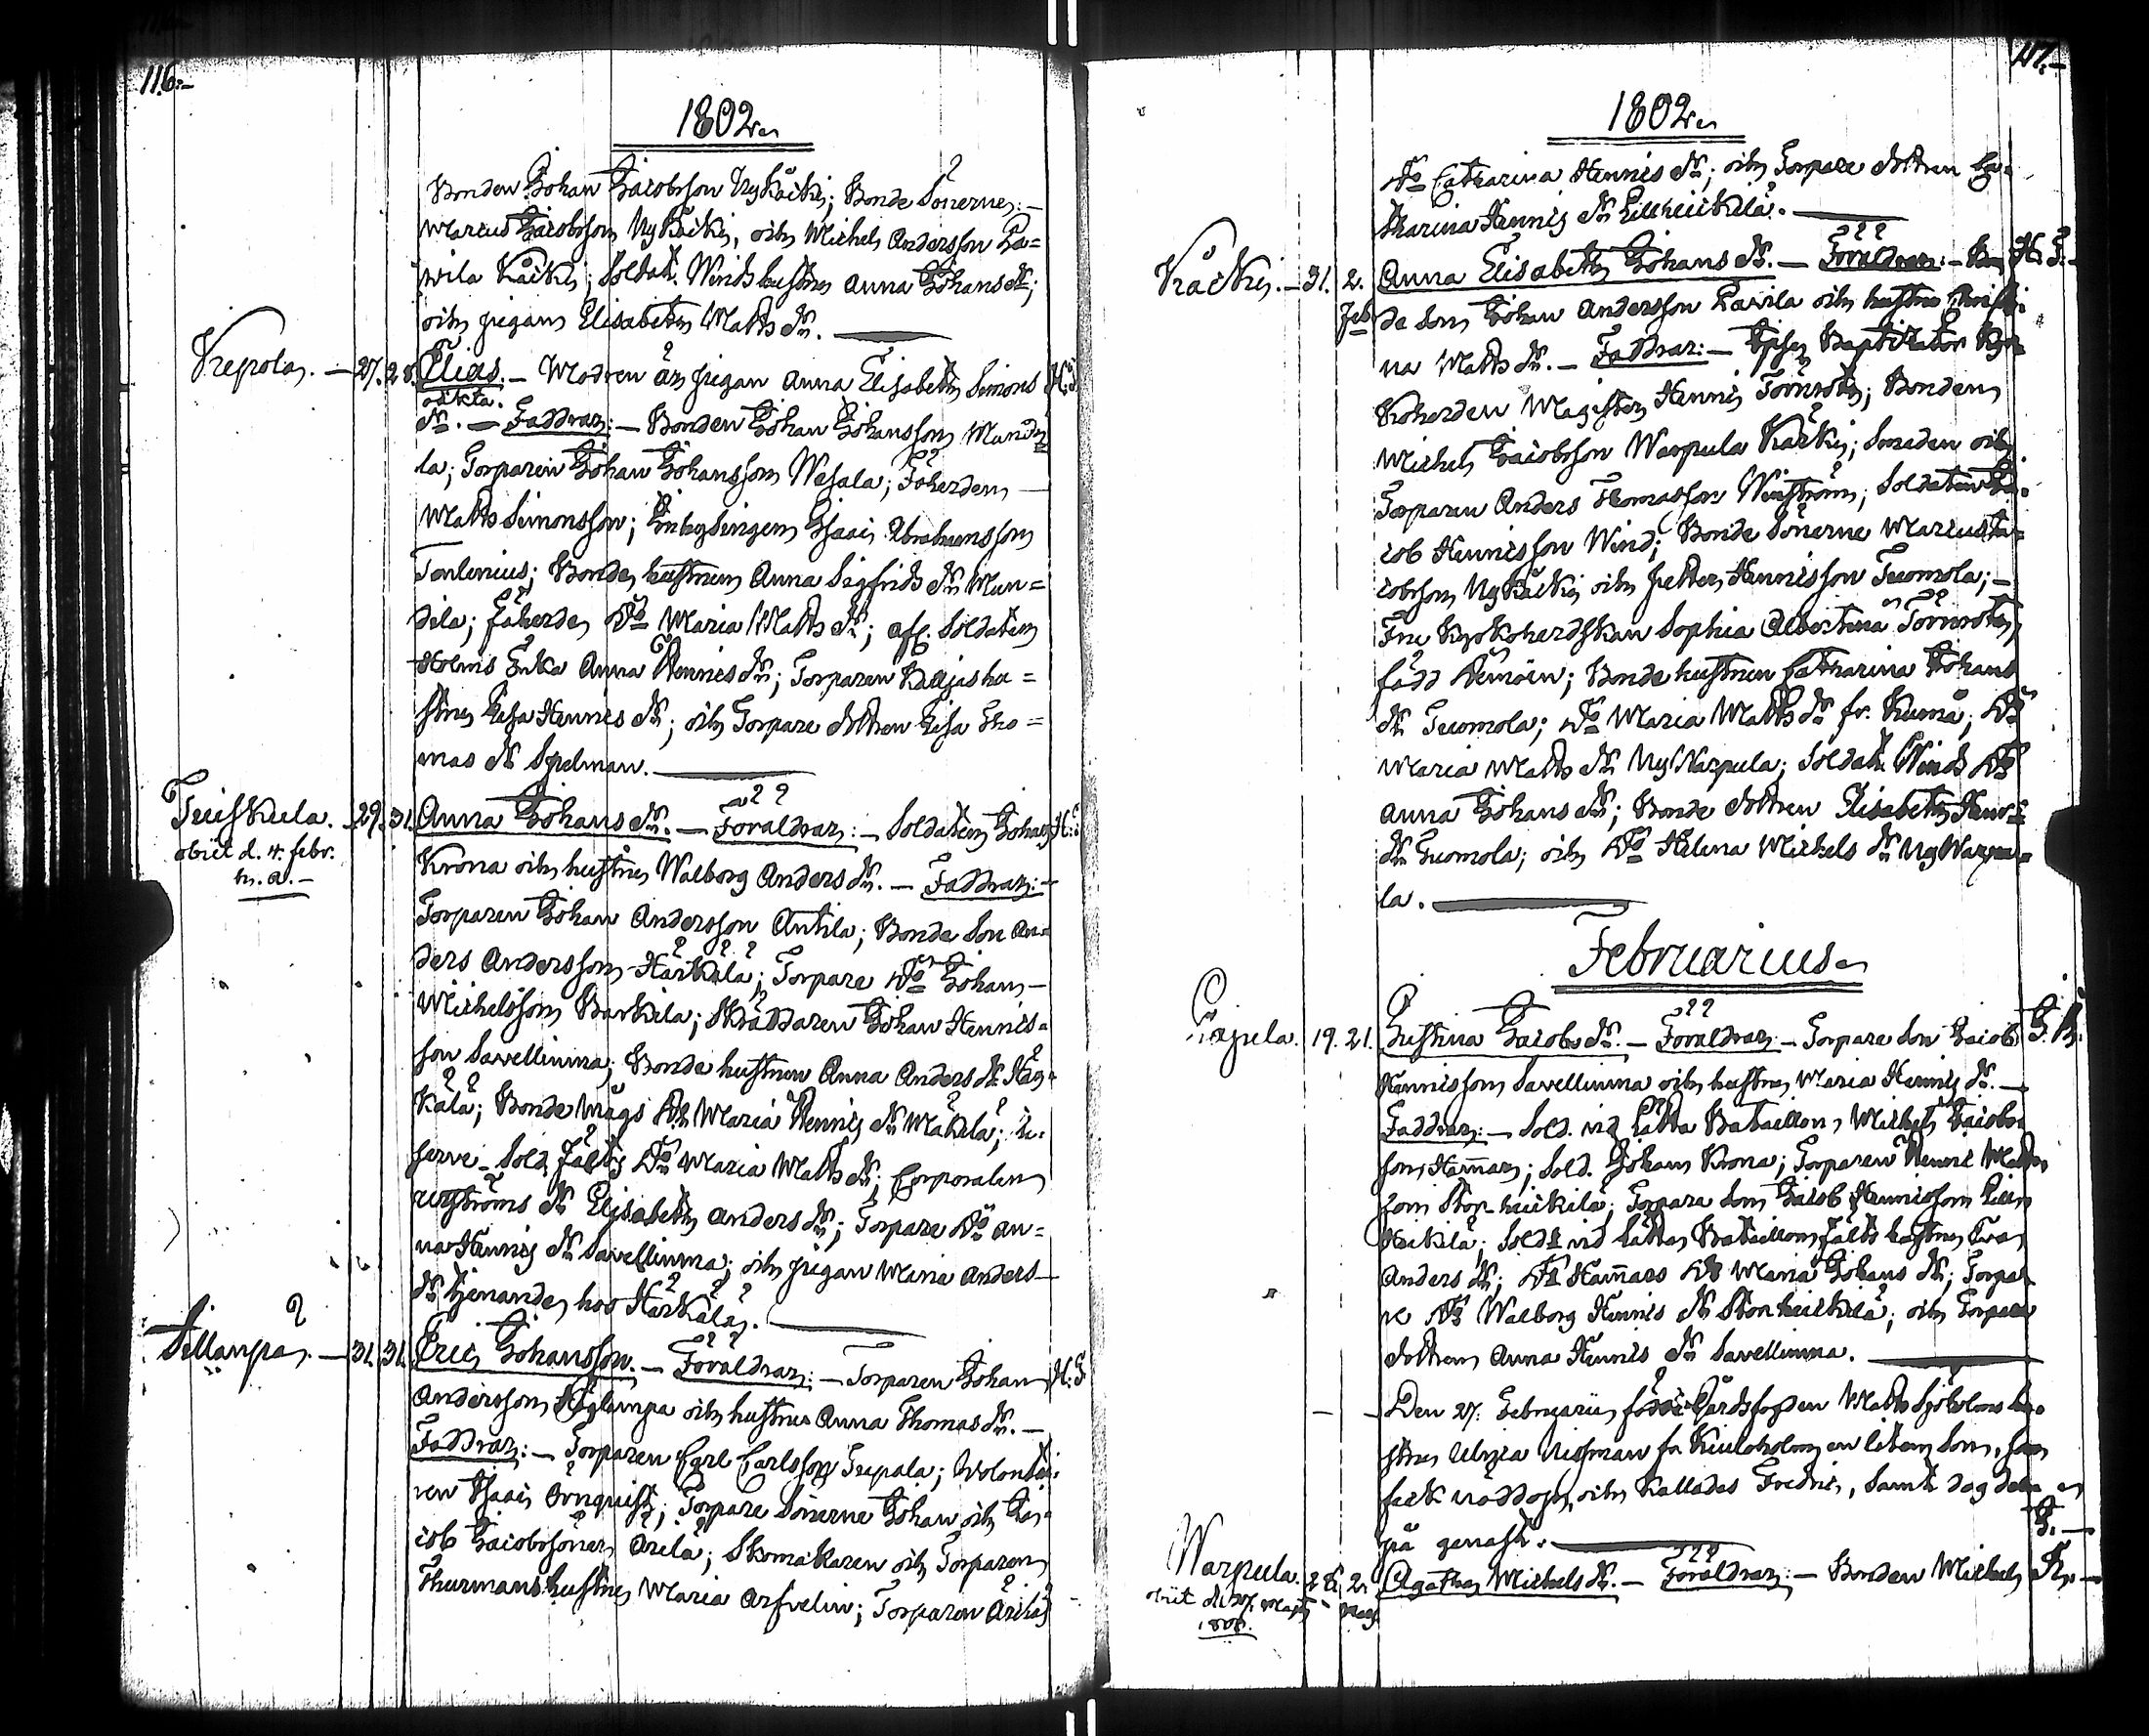 116.-
1802.
Bonden Johan Jacobsson Ny Käcki; Bonde Sönerne:-
Marcus Jacobsson Ny Käcki, och Michel Andersson Pa=
wila Käcki; Soldat. Winds hustru Anna Johans dr;
och pigan Elisabeth Matts dr.
Krepola. - 27. 28. Elias. - Modren är pigan Anna Elisabeth Simons H: J
oäkta.
dr. - Faddrar: - Bonden Johan Johansson Mandi
la; Torparen Johan Johansson Wesala; Fäherden -
Matts Simonsson; Inhysingen Isaac Abrahamsson
Tenlenius; Bonde hustrun Anna Sigfrids dr Man=
dila; Fäherde Do Maria Matts dr; afl. Soldaten
Holms Enka Anna Hennes dr; Torparen Kaijas hu=
stru Lisa Hennes dr; och Torpare dottren Lisa Tho=
mas dr Spelman.
Teiskula. 29. 31. Anna Johans dr. - Föräldrar: - Soldaten Johan H: J
obiit d. 4. febr.
h. a. -
Krona och hustru Walborg Anders dr. - Faddrar: -
Torparen Johan Andersson Antila; Bonde Son An=
ders Andersson Härkälä; Torpare Do Johan -
Michelsson Barkila; Skräddaren Johan Hennis=
son Savellinma; Bonde hustrun Anna Anders dr Här=
kälä; Bonde Mågs Do Maria Hennis dr Mäkilä;
serve Sold. Fälts Do Maria Matts dr; Corporalen
ströms dr Elisabeth Anders dr; Torpare Do An=
na Hennis dr Savellinma; och pigan Maria Anders
dr tjenande hos Härkälä.
Sillanpä. - 31. 31. Eric Johansson. - Föräldrar: - Torparen Johan H: J
Andersson och hustru Anna Thomas dr. -
Faddrar: - Torparen Carl Carlsson Trepala; Volontai=
ren Isaac Örnquist; Torpare Sönerne Johan och Ja=
cob Jacobssöner Ärilä; Skomakaren och Torparen
Thurmans hustru Maria Arfvelin; Torparen Äriläs
117.-
1802.
Do Catharina Hennis dr; och Torpare dottren Ca=
tharina Hennis dr Lillheickilä.
Käcki. - 31. 2. Anna Elisabeth Johans dr. - Föräldrar: - Bon H: J.
Feb. de Son Johan Andersson Pavila och hustru Christi=
na Matts dr. - Faddrar: - Ipse Baptizator Kyr=
koherden Magister Hennis Törnroth; Bonden
Michel Jacobsson Warpula Käcki; Smeden och
Torparen Anders Thomasson Winström; Soldaten Ja=
cob Hennisson Wind; Bonde Sönerne Marcus Ja=
cobsson Ny Käcki och Petter Hennisson Tuomola; -
Fru Kyrkoherdskan Sophia Albertina Törnroth,
född Remoin; Bonde hustrun Catharina Johans
dr Tuomola; Do Maria Matts dr fr. Kumå; Do
Maria Matts dr Ny Warpula; Soldat. Winds Do
Anna Johans dr; Bonde dottren Elisabeth Hennis
dr Tuomola; och Do Helena Michels dr Ny Warpu=
la.
Februarius
Pajula. 19. 21. Christina Jacobs dr. - Föräldrar: - Torpare Son Jacob J. K.
Hennisson Savellinma och hustru Maria Hennis dr. -
Faddrar: - Sold. vid Lätta Bataillon, Michel Jacobs=
son Hammar; Sold. Johan Krona; Torparen Henric Matts
son heickilä; Torpare Son Jacob Hennisson Lill
heikilä; Sold. vid Lätta Bataillon Fälts hustru Eva
Anders dr; Do Hammars Do Maria Johans dr; Torpa=
re Do Walborg Hennis dr Storheickilä; och Torpare
dottren Anna Hennis dr Savellinma.
- - Den 27. Februarii födde Gårdsfogden Matts Sjöholms hu=
stru Ulrica Nissman fr. Kiuloholm en liten Son, som
fick nöddop, och kallades Fredric, samt dog der
på genast.
Warpula. 28. 2. Agatha Michels dr. - Föräldrar: - Bonden Michel J. K. -
obiit d. 27. Maji Mars
1808.